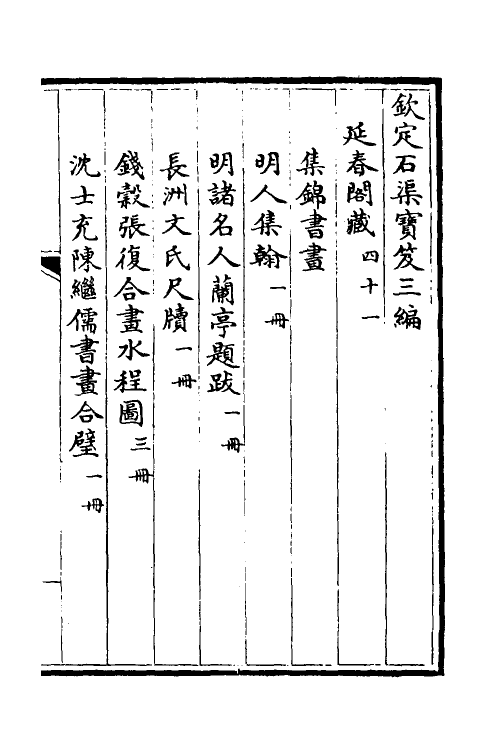 欽定石渠寶笈三編
延春閣藏 四十一
集錦書畫
明人集翰 一冊
明諸名人蘭亭題跋 一冊
長洲文氏尺牘 一冊
錢穀張復合畫水程圖 三冊
沈士充陳繼儒書畫合璧 一冊